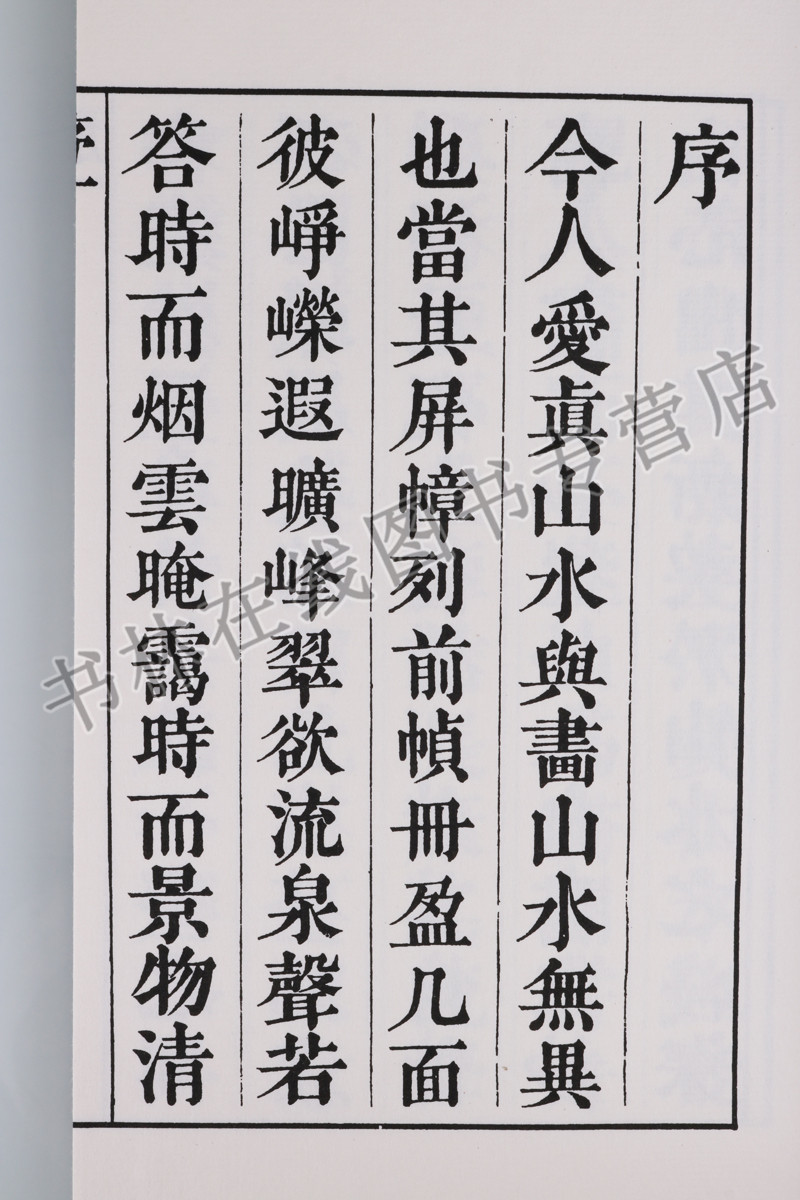 序
今人愛眞山水與畫山水無異
也當其屏幛列前幀冊盈几面
彼崢嶸遐曠峰翠欲流泉聲若
答時而烟雲晻靄時而景物清
书林在线图书专营店